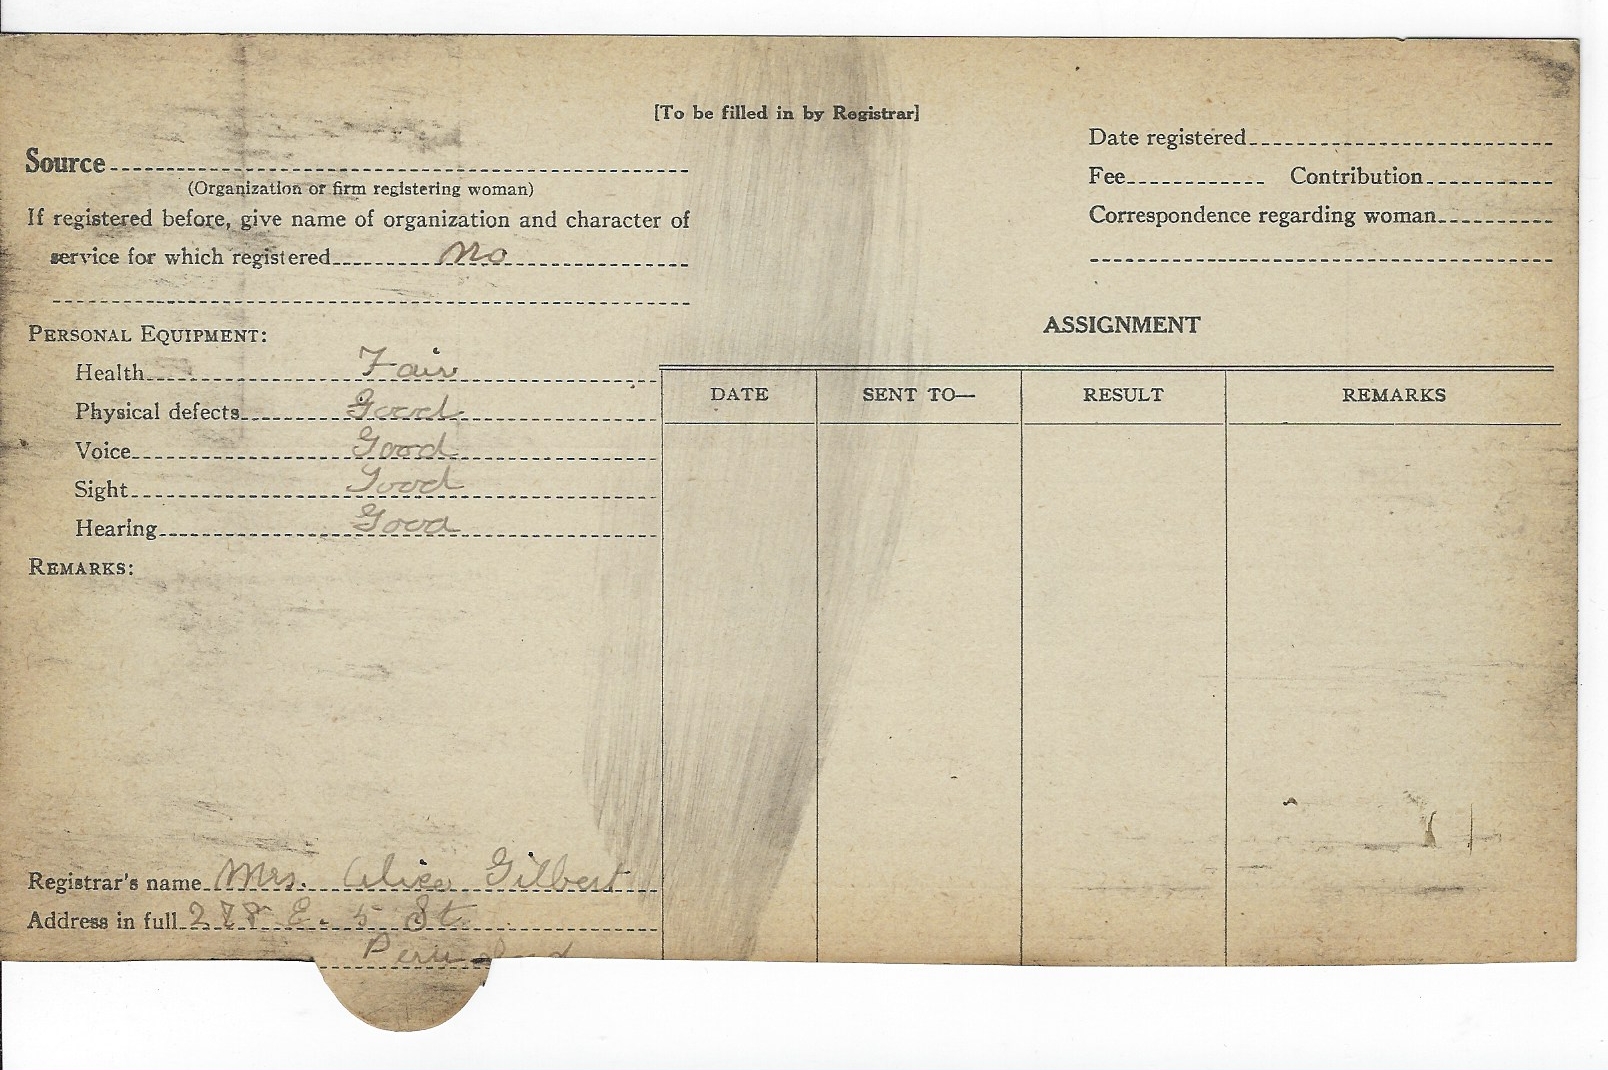 [To be filled in by Registrar]
Source
(Organization or firm registering woman)
If registered before, give name of organization and character of
service for which registered No
PERSONAL EQUIPMENT:
Health Fair
Physical defects Good
Voice Good
Sight Good
Hearing Good
REMARKS:
Registrar's name Mrs. Alice Gilbert
Address in full E. 5 St.
Peru
Date registered
Fee Contribution
Correspondence regarding woman
ASSIGNMENT
DATE SENT TO— RESULT REMARKS